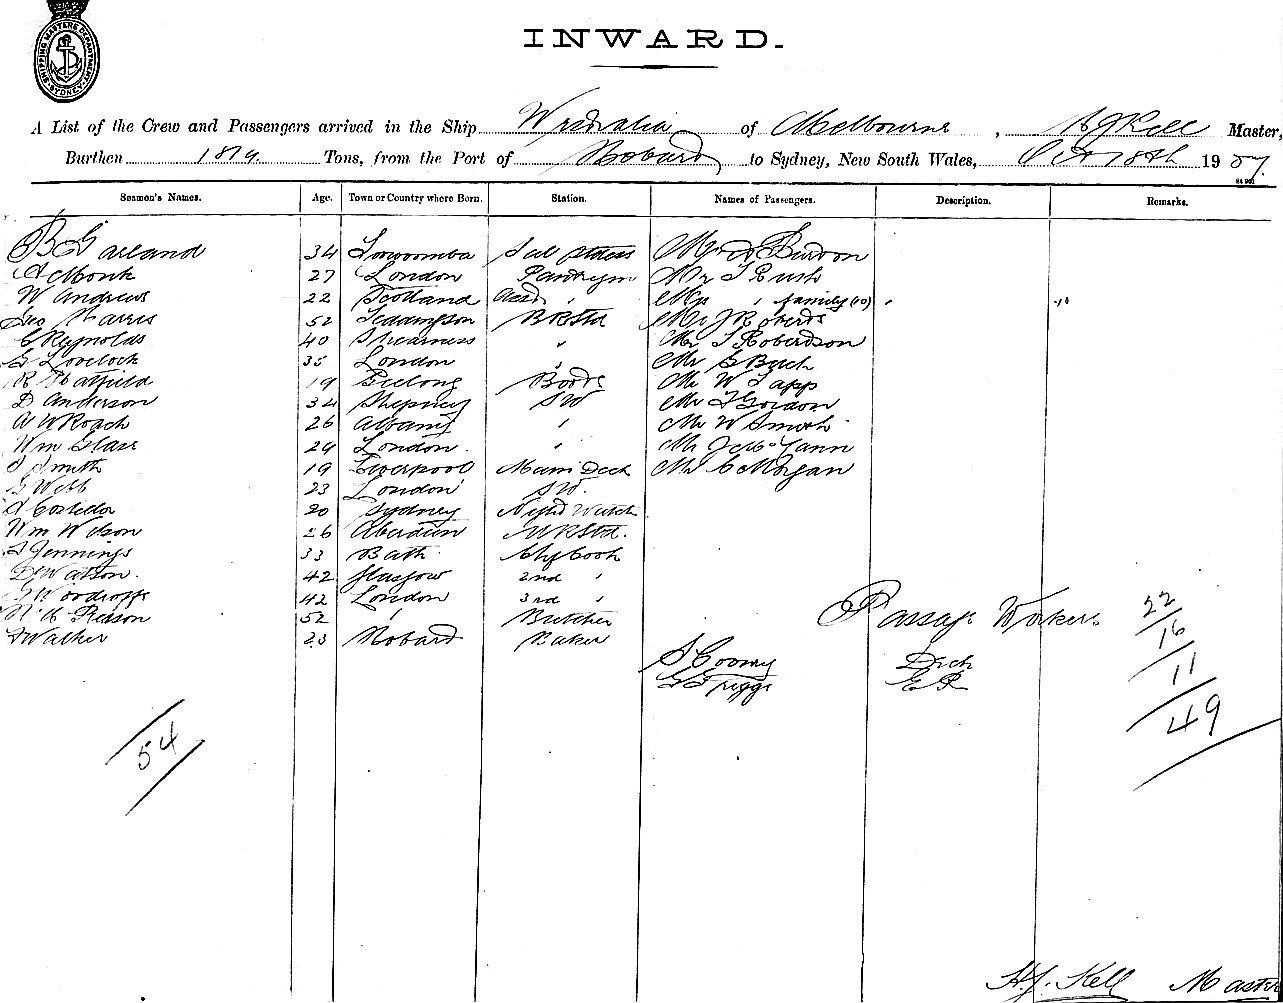 SHIPPING MASTERS DEPARTMENT SYDNEY
INWARD.
A List of the Crew and Passengers arrived in the Ship Westralia of Melbourne, H J Kell Master,
Burthen 1819. Tons, from the Port of Hobart to Sydney, New South Wales, Oct 18th 1907.
Seamen's Names. Age. Town or Country where Born. Station. Names of Passengers. Description. Remarks.
B Garland 34 Toowoomba Sal Stdess Mrs Burdon
A Monk 27 London Pantrym Mr T Rush
W Andrews 22 Scotland Asst " Mrs " family (10) "
Geo Harris 52 BRStd Mr J Roberts
C Reynolds 40 Sheerness " Mr T Robertson
G Lovelock 35 London " Mr G Burch
R Hatfield 19 Geelong Boots Mr W Tapp
D Anderson 34 Stepney SW Mr T Gordon
A W Roach 26 Albany " Mr W Smith
Wm Glass 29 London " Mr J McCann
J Smith 19 Liverpool Mr C Morgan
G Webb 23 London SW.
A Costello 20 Sydney Night Watch
Wm Wilson 26 Aberdeen MRStd.
S Jennings 33 Bath Chf Cook
D Watson. 42 Glasgow 2nd "
G Woodroffe 42 London 3rd "
52 " Butcher
Walker 23 Hobart Baker
Passage Workers
22
16
11
49
S Coomy Deck
G Triggs ER
54
H.J. Kell Master